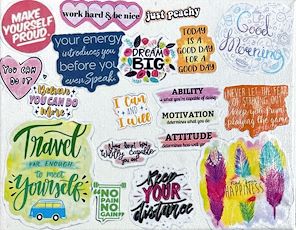 MAKE
YOURSELF
PROUD
work hard & be nice
just peachy
your energy
introduces you
before you
even speak
DREAM
BIG
TODAY
IS A
GOOD DAY
FOR A
GOOD DAY
Good
Morning
YOU CAN
DO IT
Believe
YOU CAN DO
I Can
AND
I will
ABILITY
what you're capable of doing
MOTIVATION
determines what you do
ATTITUDE
determines how well
NEVER LET THE FEAR
OF STRIKING OUT
keep you from
playing the game
Travel
FAR ENOUGH
to meet
Yourself
"NO
PAIN
NO
GAIN"
keep
YOUR
distance
HAPPINESS